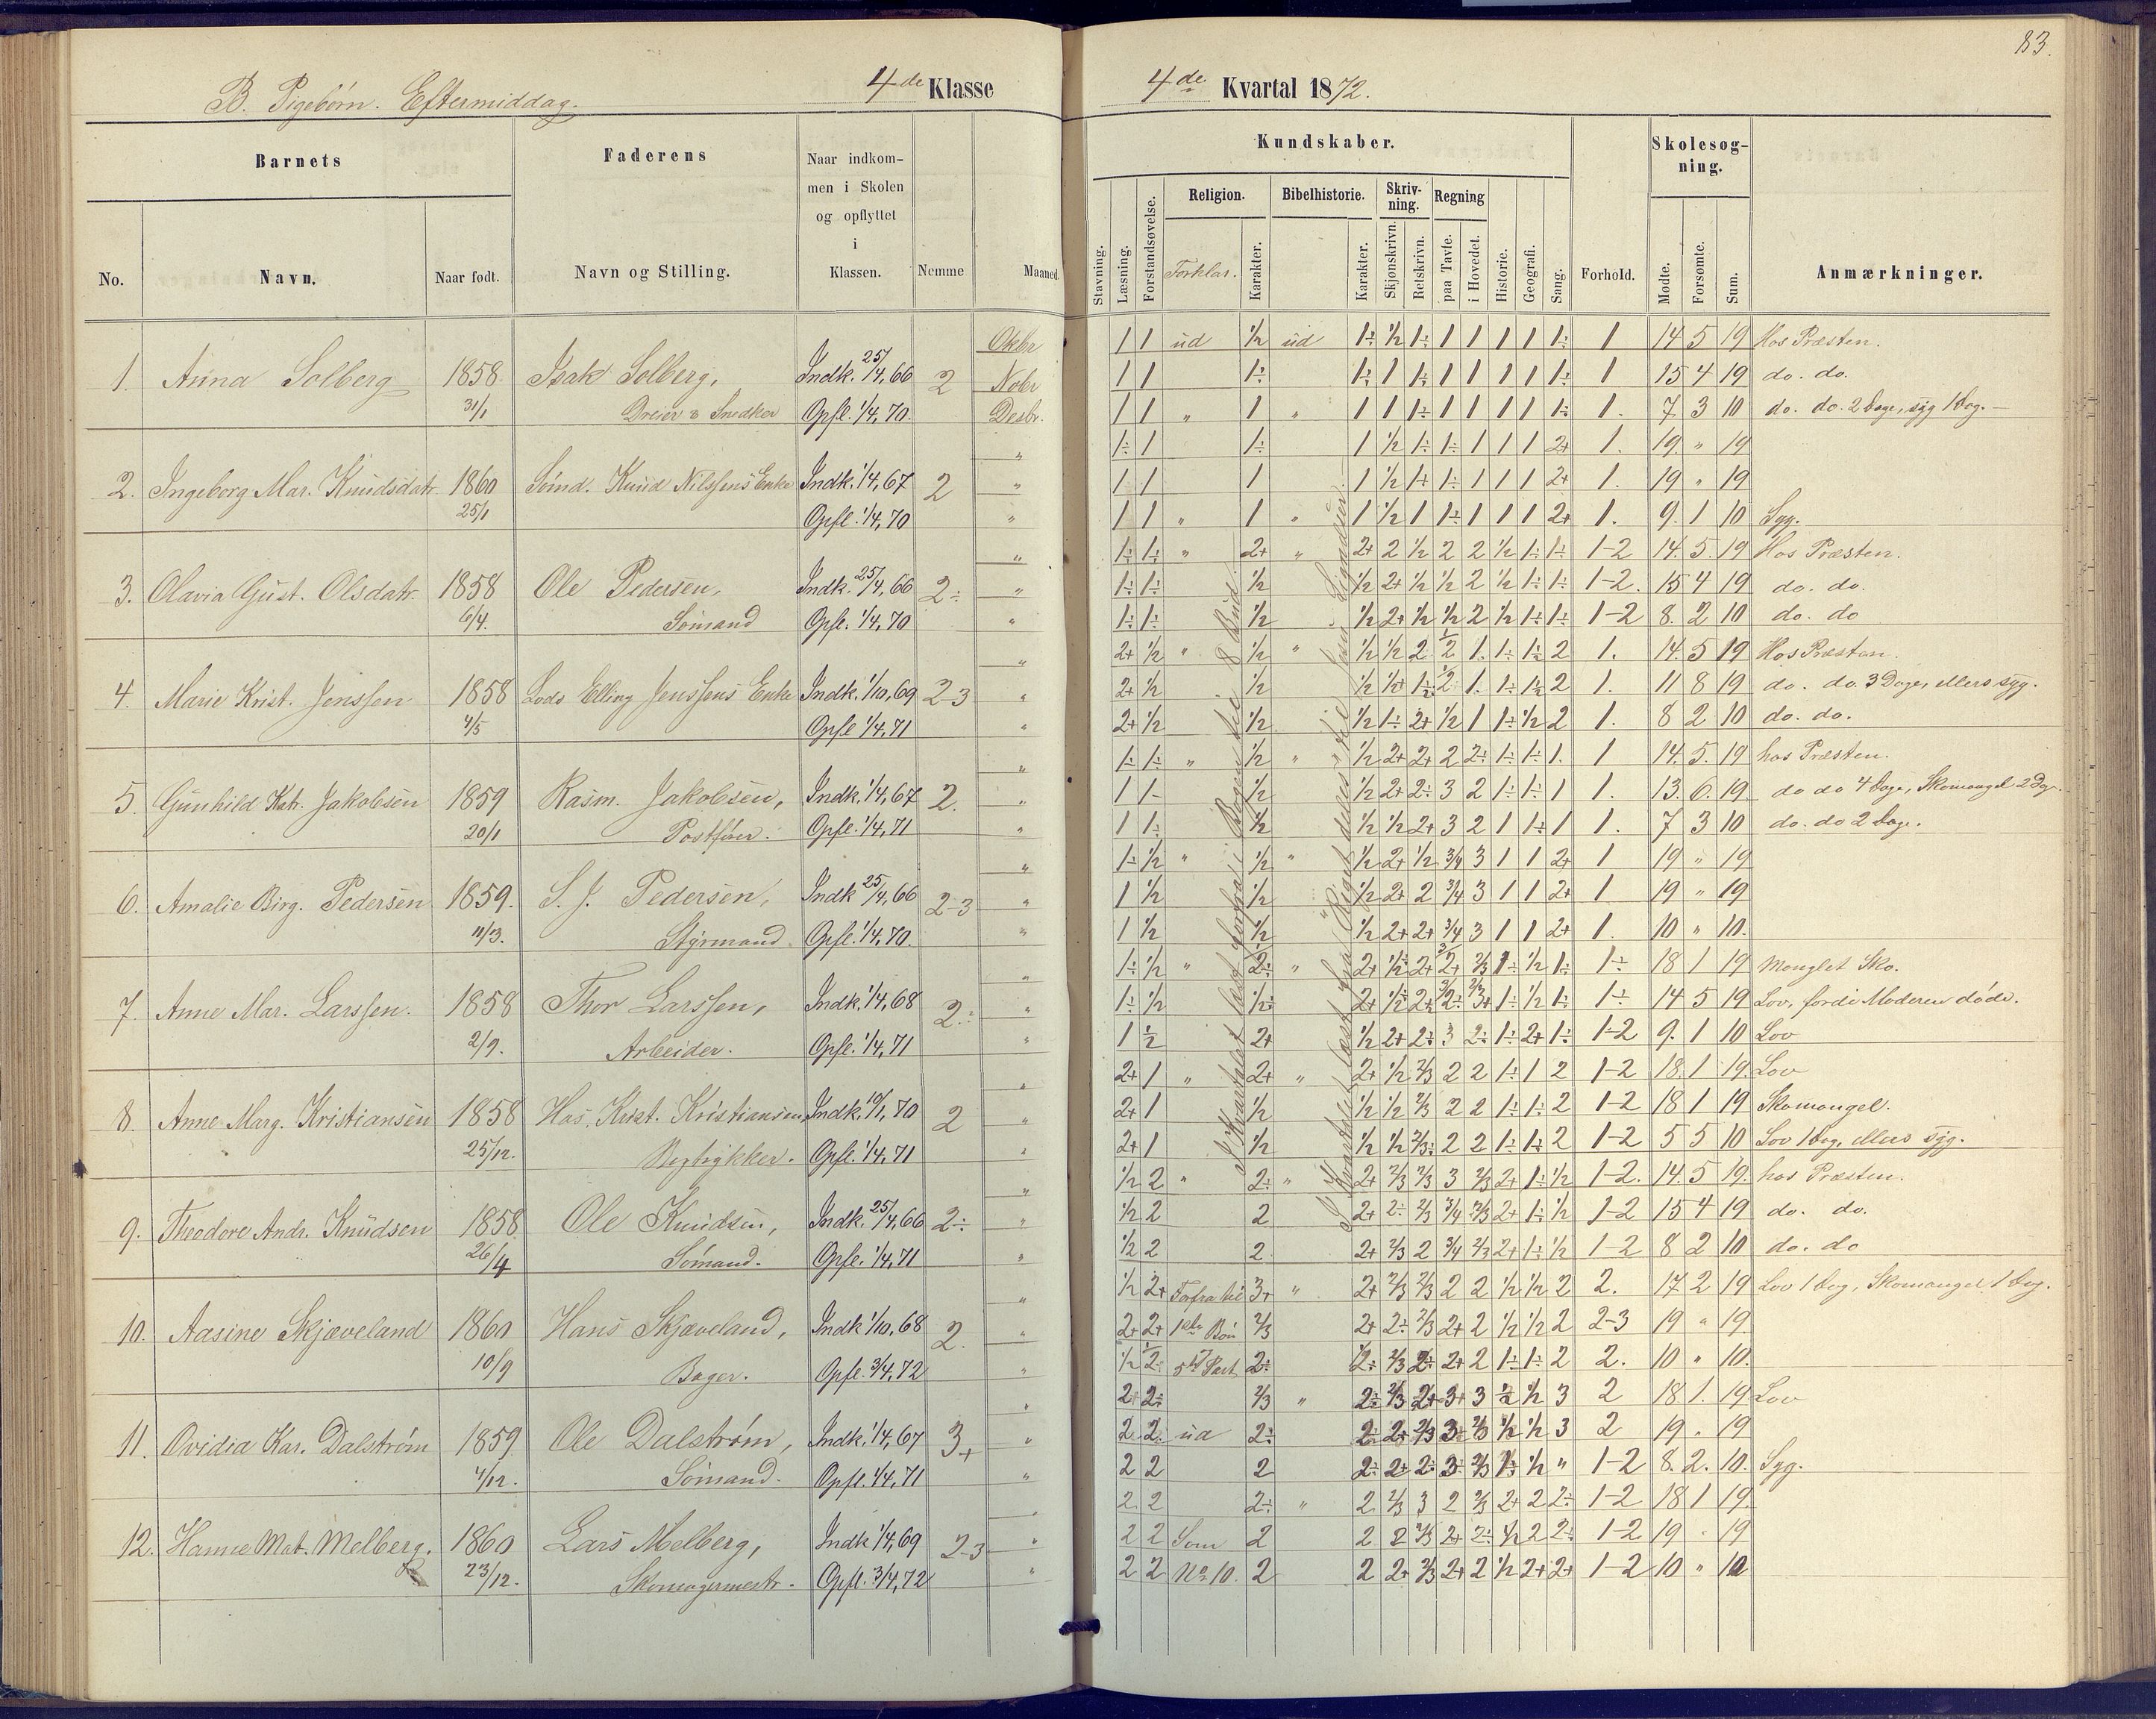 83.
B. Pigebørn. Eftermiddag.
4de Klasse
4de Kvartal 1872.
Barnets
Faderens
Naar indkom-
men i Skolen
og opflyttet
i
Klassen.
Nemme
Maaned
No.
Navn.
Naar født.
Navn og Stilling.
Kundskaber.
Skolesøg-
ning.
Religion.
Bibelhistorie.
Skriv-
ning.
Regning
Stavning.
Læsning.
Forstandsøvelse.
Forklar.
Karakter.
Karakter.
Skjønskrivn.
Retskrivn.
paa Tavle.
i Hovedet.
Historie.
Geografi.
Sang.
Forhold.
Mødte.
Forsømte.
Sum.
Anmærkninger.
1. Anna Solberg 1858 31/1 Isak Solberg, Dreier & Snedker Indk. 25/4, 66 Opfl. 1/4, 70. 2
Oktbr 1 1 ud 1/2 ud 1÷ 1/2 1÷ 1 1 1 1 1÷ 1 14 5 19 Hos Præsten.
Nobr 1 1 1÷ 1÷ 1 1÷ 1 1 1 1 1÷ 1 15 4 19 do. do.
Desbr. 1 1 " 1 " 1 1 1÷ 1 1 1 1 1÷ 1. 7 3 10 do. do. 2 Dage, syg 1 Dag.
2. Ingeborg Mar. Knudsdatr 1860 25/1 Sømd. Knud Nilssens Enke Indk. 1/4, 67 Opfl. 1/4, 70 2
" 1÷ 1 1÷ 1 1/2 1÷ 1÷ 1 1 1 2+ 1. 19. " 19
" 1 1 1 1 1/2 1+ 1÷ 1 1 1 2+ 1. 19 " 19
" 1 1 " 1 " 1 1/2 1 1÷ 1 1 1 2+ 1. 9. 1 10 Syg.
3. Olavia Gust. Olsdatr. 1858 6/4. Ole Pedersen, Sømand Indk. 25/4, 66 Opfl. 1/4, 70 2÷
" 1÷ 1÷ " 2+ " 2+ 2 1/2 2 2 1/2 1÷ 1÷ 1-2 14. 5. 19 Hos Præsten.
" 1÷ 1÷ 1/2 1/2 2+ 1/2 1/2 2 1/2 1÷ 1÷ 1-2. 15 4 19 do. do.
" 1÷ 1÷ 1/2 1/2 2+ 1/2 1/2 2 1/2 1÷ 1÷ 1-2 8. 2 10 do. do
4. Marie Krist. Jenssen 1858 4/5 Lods Elling Jenssens Enke Indk. 1/10, 69 Opfl 1/4, 71 2-3
" 2+ 1/2 " 1/2 " 1/2 1/2 2 1/2 1. 1÷ 1÷ 2 1. 14. 5 19 Hos Præsten.
" 2+ 1/2 1/2 1. 11 8 19 do. do. 3 Dage, ellers syg.
" 2+ 1/2 1/2 1/2 1÷ 2+ 1/2 1 1÷ 1/2 2 1. 8 2 10 do. do.
5 Gunhild Katr. Jakobsen 1859 20/1 Rasm. Jakobsen, Postfører. Indk. 1/4, 67 Opfl. 1/4, 71 2.
" 1÷ 1÷ " 1/2 " 1/2 2+ 2+ 2 2÷ 1÷ 1÷ 1. 1 14. 5. 19 hos Præsten.
" 1 1- 1/2 1/2 2+ 2÷ 3 2 1÷ 1÷ 1 1. 13. 6. 19 do do 4 Dage, Skomangel 2 Dge.
" 1 1÷ 1/2 1/2 1/2 2+ 3 2 1 1÷ 1 1. 7 3 10 do. do 2 Dage.
6. Amalie Birg. Pedersen 1859. 11/3. S. J. Pedersen, Styrmand Indk 25/4, 66 Opfl. 1/4, 70. 2-3
" 1÷ 1/2 " 1/2 " 1/2 2+ 1/2 3/4 3 1 1 2+ 1 19 " 19
" 1 1/2 1/2 1/2 2+ 2 3/4 3 1 1 2+ 1 19 " 19
" 1 1/2 1/2 1/2 2+ 2+ 3/4 3 1 1 2+ 1. 10 " 10.
7. Anne Mar. Larssen. 1858 2/9. Thor Larssen, Arbeider. Indk. 1/4, 68 Opfl. 1/4, 71 2÷
" 1÷ 1/2 " " 1÷ 18 1 19 Manglet Sko.
" 1÷ 1/2 1÷ 14 5 19 Lov, fordi Moderen døde.
" 1 1/2 2+ 1/2 2+ 2÷ 3 2÷ 1÷ 2+ 1÷ 1-2 9. 1 10 Lov
8. Anne Marg. Kristiansen 1858 25/12. Has. Krist. Kristiansen, Indk. 10/1, 70 Opfl. 1/4, 71 2
" 2+ 1 " 2+ " 2+ 1/2 2/3 2 2 1÷ 1 2 1-2 18. 1 19 Lov
" 2+ 1 1/2 1/2 1/2 2/3 2 2 1÷ 1÷ 2 1-2 18 1 19 Skomangel.
" 2+ 1 1/2 1/2 1/2 2/3÷ 2 2 1÷ 1÷ 2 1-2 5 5 10 Lov 1 Dag, ellers syg.
9. Theodore Andr. Knudsen 1858 26/4 Ole Knudsen, Sømand. Indk. 25/4, 66 Opfl. 1/4, 71 2÷
" 1/2 2 " 2÷ " 2+ 2/3 2/3 3 2/3 2+ 1÷ 1/2 1-2. 14. 5 19. hos Præsten.
" 1/2 2 2 2+ 2÷ 2/3 3/4 2/3 2+ 1÷ 1/2 1-2 15 4 19 do. do.
" 1/2 2 2. 2+ 2/3 2 3/4 2/3 2+ 1÷ 1/2 1-2 8 2 10 do. do
10. Aasine Skjæveland 1860 10/9 Hans Skjæveland, Bager. Indk 1/10, 68 Opfl. 3/4, 72 2.
" 1/2 2+ Forfra til 3+ " 2+ 2/3 2/3 2 2 1/2 1/2 2 2. 17 2 19 Lov 1 Dag, Skomangel 1 Dag.
" 2+ 2+ 1ste Bøn 2/3 2+ 2÷ 2/3 2+ 2 1/2 1/2 2 2-3 19 " 19
" 1/2 5te Part 2÷ 2÷ 2/3 2+ 2+ 2 1÷ 1÷ 2 2. 10 " 10.
11. Ovidia Kar. Dalstrøm 1859 4/12. Ole Dalstrøm, Sømand. Indk. 1/4, 67 Opfl. 1/4, 71 3+
" 2+ 2÷ 2/3 " 2÷ 2/3 2+ 3+ 3 1/2 1/2 3 2 18 1. 19 Lov
" 2. 2. ud 2÷ 2÷ 2+ 2/3 3÷ 2/3 1/2 1/2 3 2 19 " 19
" 2 2 2 2÷ 2+ 2÷ 3÷ 2/3 1÷ 1/2 " 1-2 8. 2. 10. Syg.
12. Hanne Mat. Melberg. 1860 23/12. Lars Melberg, Skomagermestr. Indk 1/4, 69 Opfl. 3/4, 72 2-3
" 2 2 2÷ " 2 2/3 3 2 2/3 2+ 2 2÷ 1-2 18 1 19.
" 2 2 Som 2 2 2 2/3 2+ 2÷ 1/2 2 2÷ 1-2 19 " 19
" 2 2 No 10. 2 2 2+ 2/3 2+ 2 1/2 2+ 2+ 1-2 10 " 10
I Kvartalet læst forfra i Bogen til 8 Bud.